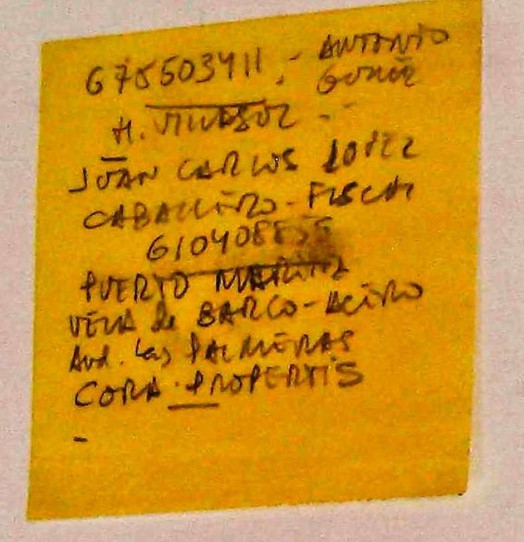 678503411.- ANTONIO
GOMEZ
H. VILLASOL - -
JUAN CARLOS LOPEZ
CABALLERO - FISCAL
610408
PUERTO MARINA
VELA de BARCO - ACERO
Avd. Las PALMERAS
CORA PROPERTIS
-